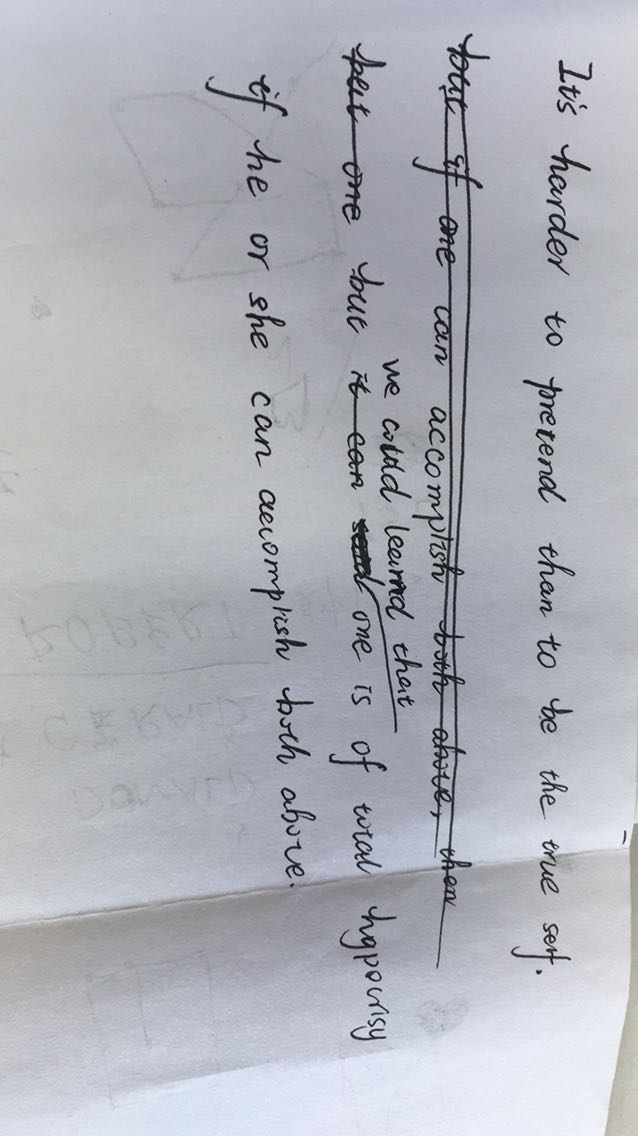 It's harder to pretend than to be the true self.
but if one can accomplish both above, then
we could learnd that
but one but it can one is of total hypocrisy
if he or she can accomplish both above.
ROBERT
GERALD
DONALD